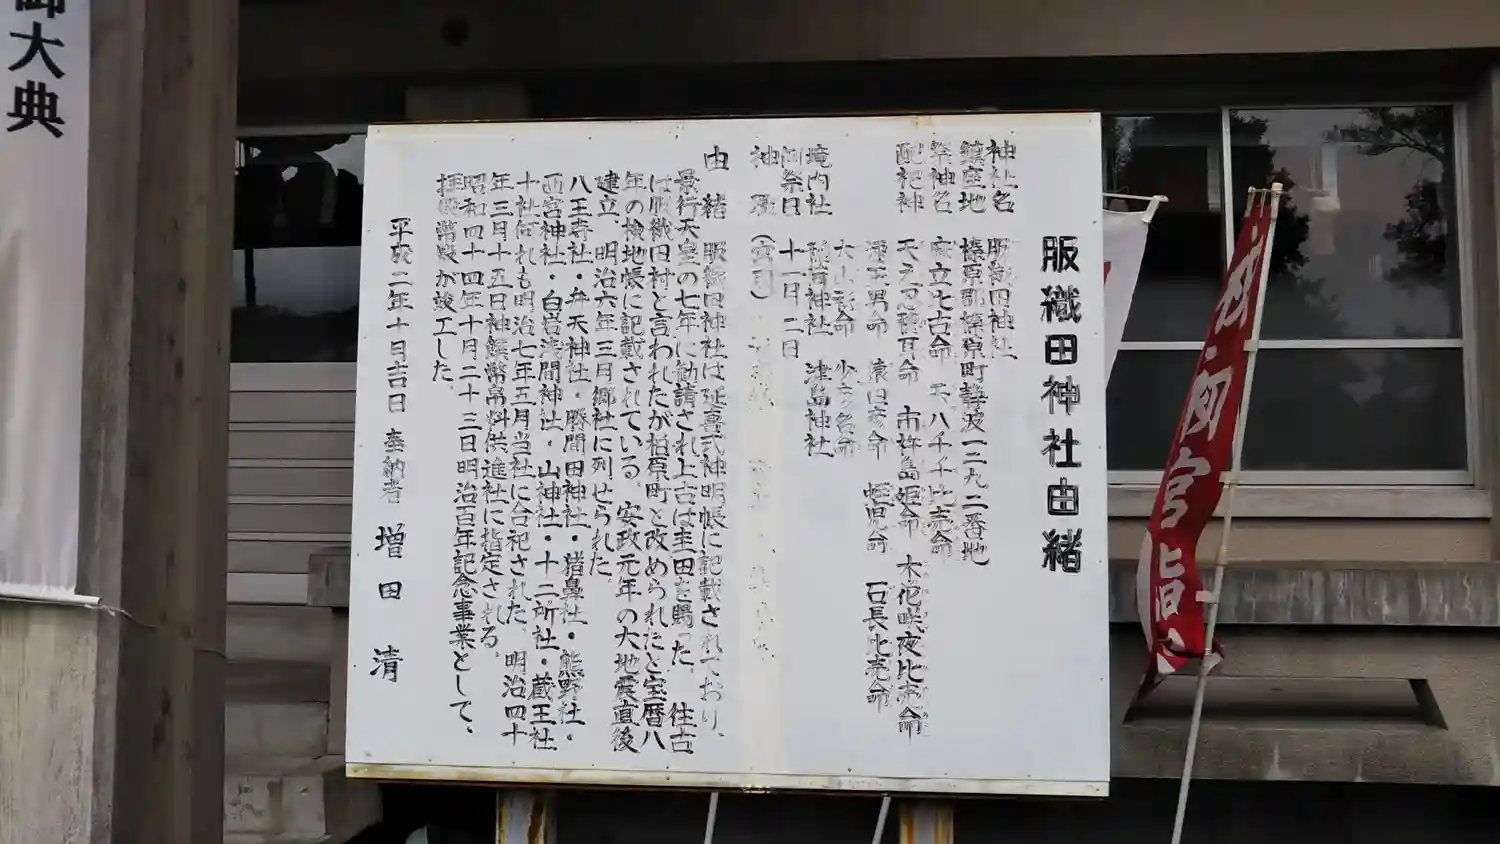 服織田神社由緒
神社名 服織田神社
鎮座地 榛原郡榛原町静波一二九二番地
祭神名 麻立比古命 天八千千比売命
配祀神 天之忍穂耳命 市杵島姫命 木花咲夜比売命
猿田彦命 蛭児命 石長比売命
大山 命 少 名命
境内社 稲荷神社 津島神社
例祭日 十一月二日
神
由緒 服織田神社は延喜式神明帳に記載されており、
景行天皇の七年に勧請され上古は圭田を賜った。往古
は服織田村と言われたが柏原町と改められたと宝暦八
年の検地帳に記載されている。安政元年の大地震直後
建立、明治六年三月郷社に列せられた。
八王寺社・弁天神社・勝間田神社・猪鼻社・熊野社・
西宮神社・白岩浅間神社・山神社・十二所社・蔵王社
十社何れも明治七年五月当社に合祀された。明治四十
年三月十五日神饌幣帛料供進社に指定される。
昭和四十四年十月二十三日明治百年記念事業として、
拝殿幣殿が竣工した。
平成二年十月吉日 奉納者 増田 清
御大典
初宮詣